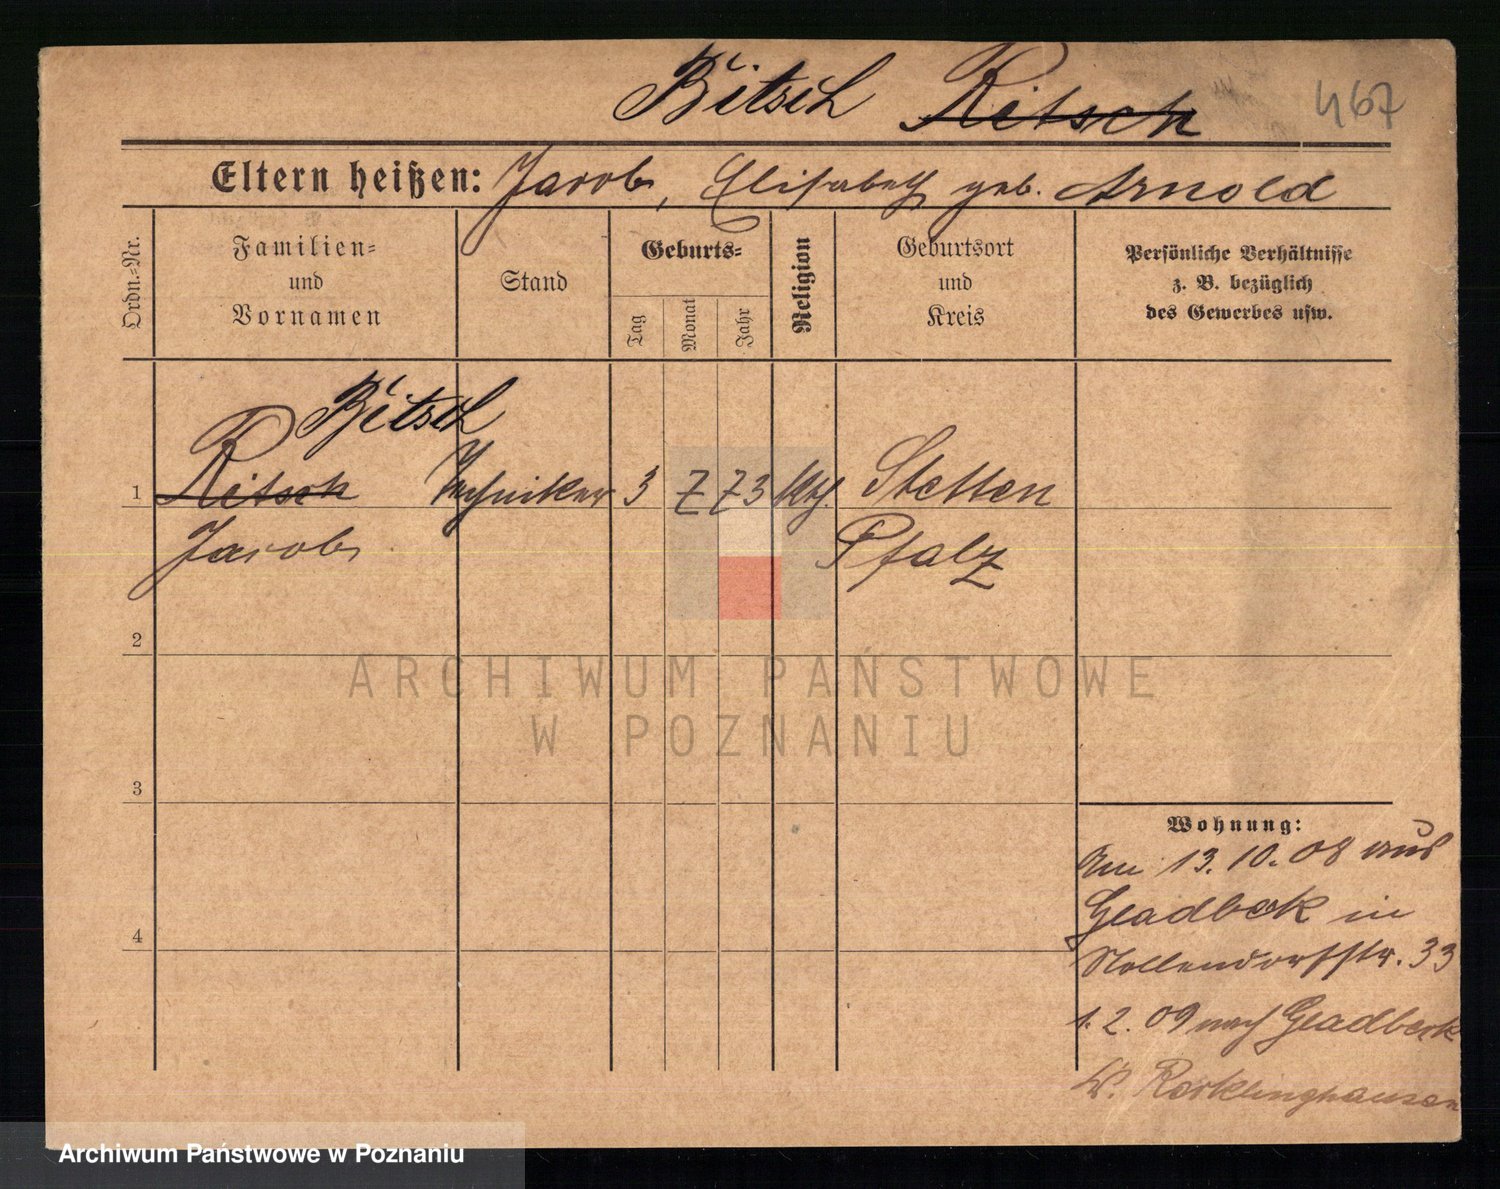 Bitsch Ritsch 467
Eltern heißen: Jacob, Elisabeth geb. Arnold
Ordn.-Nr.
Familien-
und
Vornamen
Stand
Geburts-
Tag
Monat
Jahr
Religion
Geburtsort
und
Kreis
Persönliche Verhältnisse
z. B. bezüglich
des Gewerbes usw.
Bitsch
1 Ritsch Techniker 3 7 73 kth. Stetten
Jacob Pfalz
2
3
4
Wohnung:
Am 13.10.08 aus
Gladbeck in
Nollendorfstr. 33
1.2.09 nach Gladbeck
Kr. Recklinghausen
ARCHIWUM PAŃSTWOWE
W POZNANIU
Archiwum Państwowe w Poznaniu